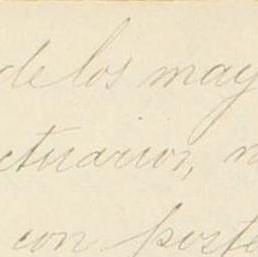 de los may
ctuarios, n
con poste